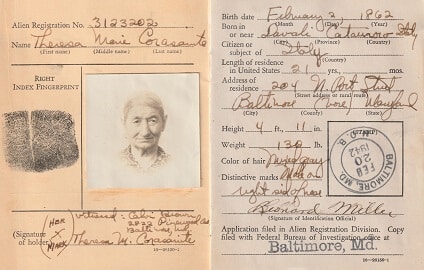 Alien Registration No. 3123202
Name Theresa Marie Corasaniti
(First name) (Middle name) (Last name)
RIGHT
INDEX FINGERPRINT
HER
MARK
Baltimore, Md.
(Signature
of holder) Theresa M. Corasaniti
Birth date February 2, 1862
(Month) (Day) (Year)
Born in
or near Catanzaro Italy
(City) (Province) (Country)
Citizen or
subject of Italy
(Country)
Length of residence
in United States 21 yrs., mos.
Address of
residence 204 N. Port Street
(Street address or rural route)
Baltimore Maryland
(City) (County) (State)
Height 4 ft., 11 in.
Weight 130 lb.
Color of hair Gray
Distinctive marks Mole on
right side of nose
(STAMP)
BALTIMORE, MD.
FEB
20
1942
Leonard Miller
(Signature of Identification Official)
Application filed in Alien Registration Division. Copy
filed with Federal Bureau of Investigation office at
Baltimore, Md.